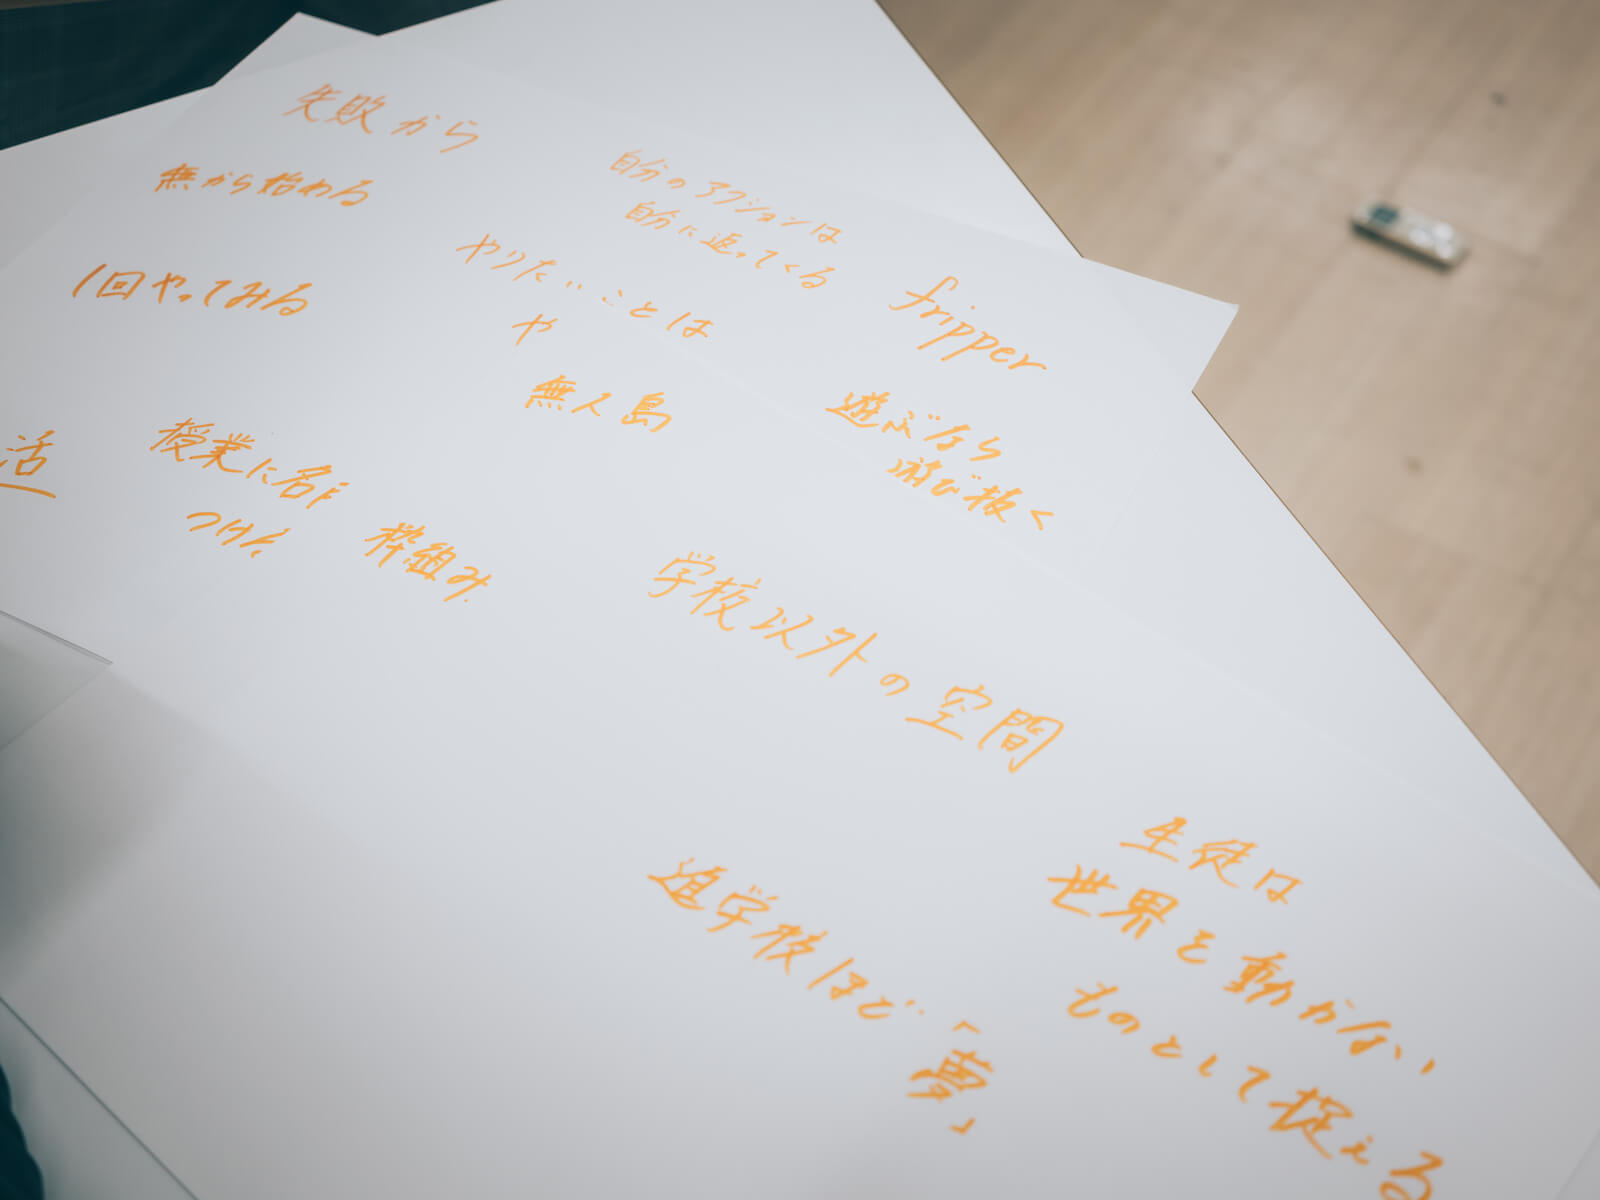 失敗から
無から始める
1回やってみる
自分のアクションは
自分に返ってくる
やりたいことは
や
無人島
fripper
遊ぶなら
遊び抜く
活
授業に名前
つけん
枠組み
学校以外の空間
進学校ほど
「夢」
生徒は
世界を動かない
ものとして捉える